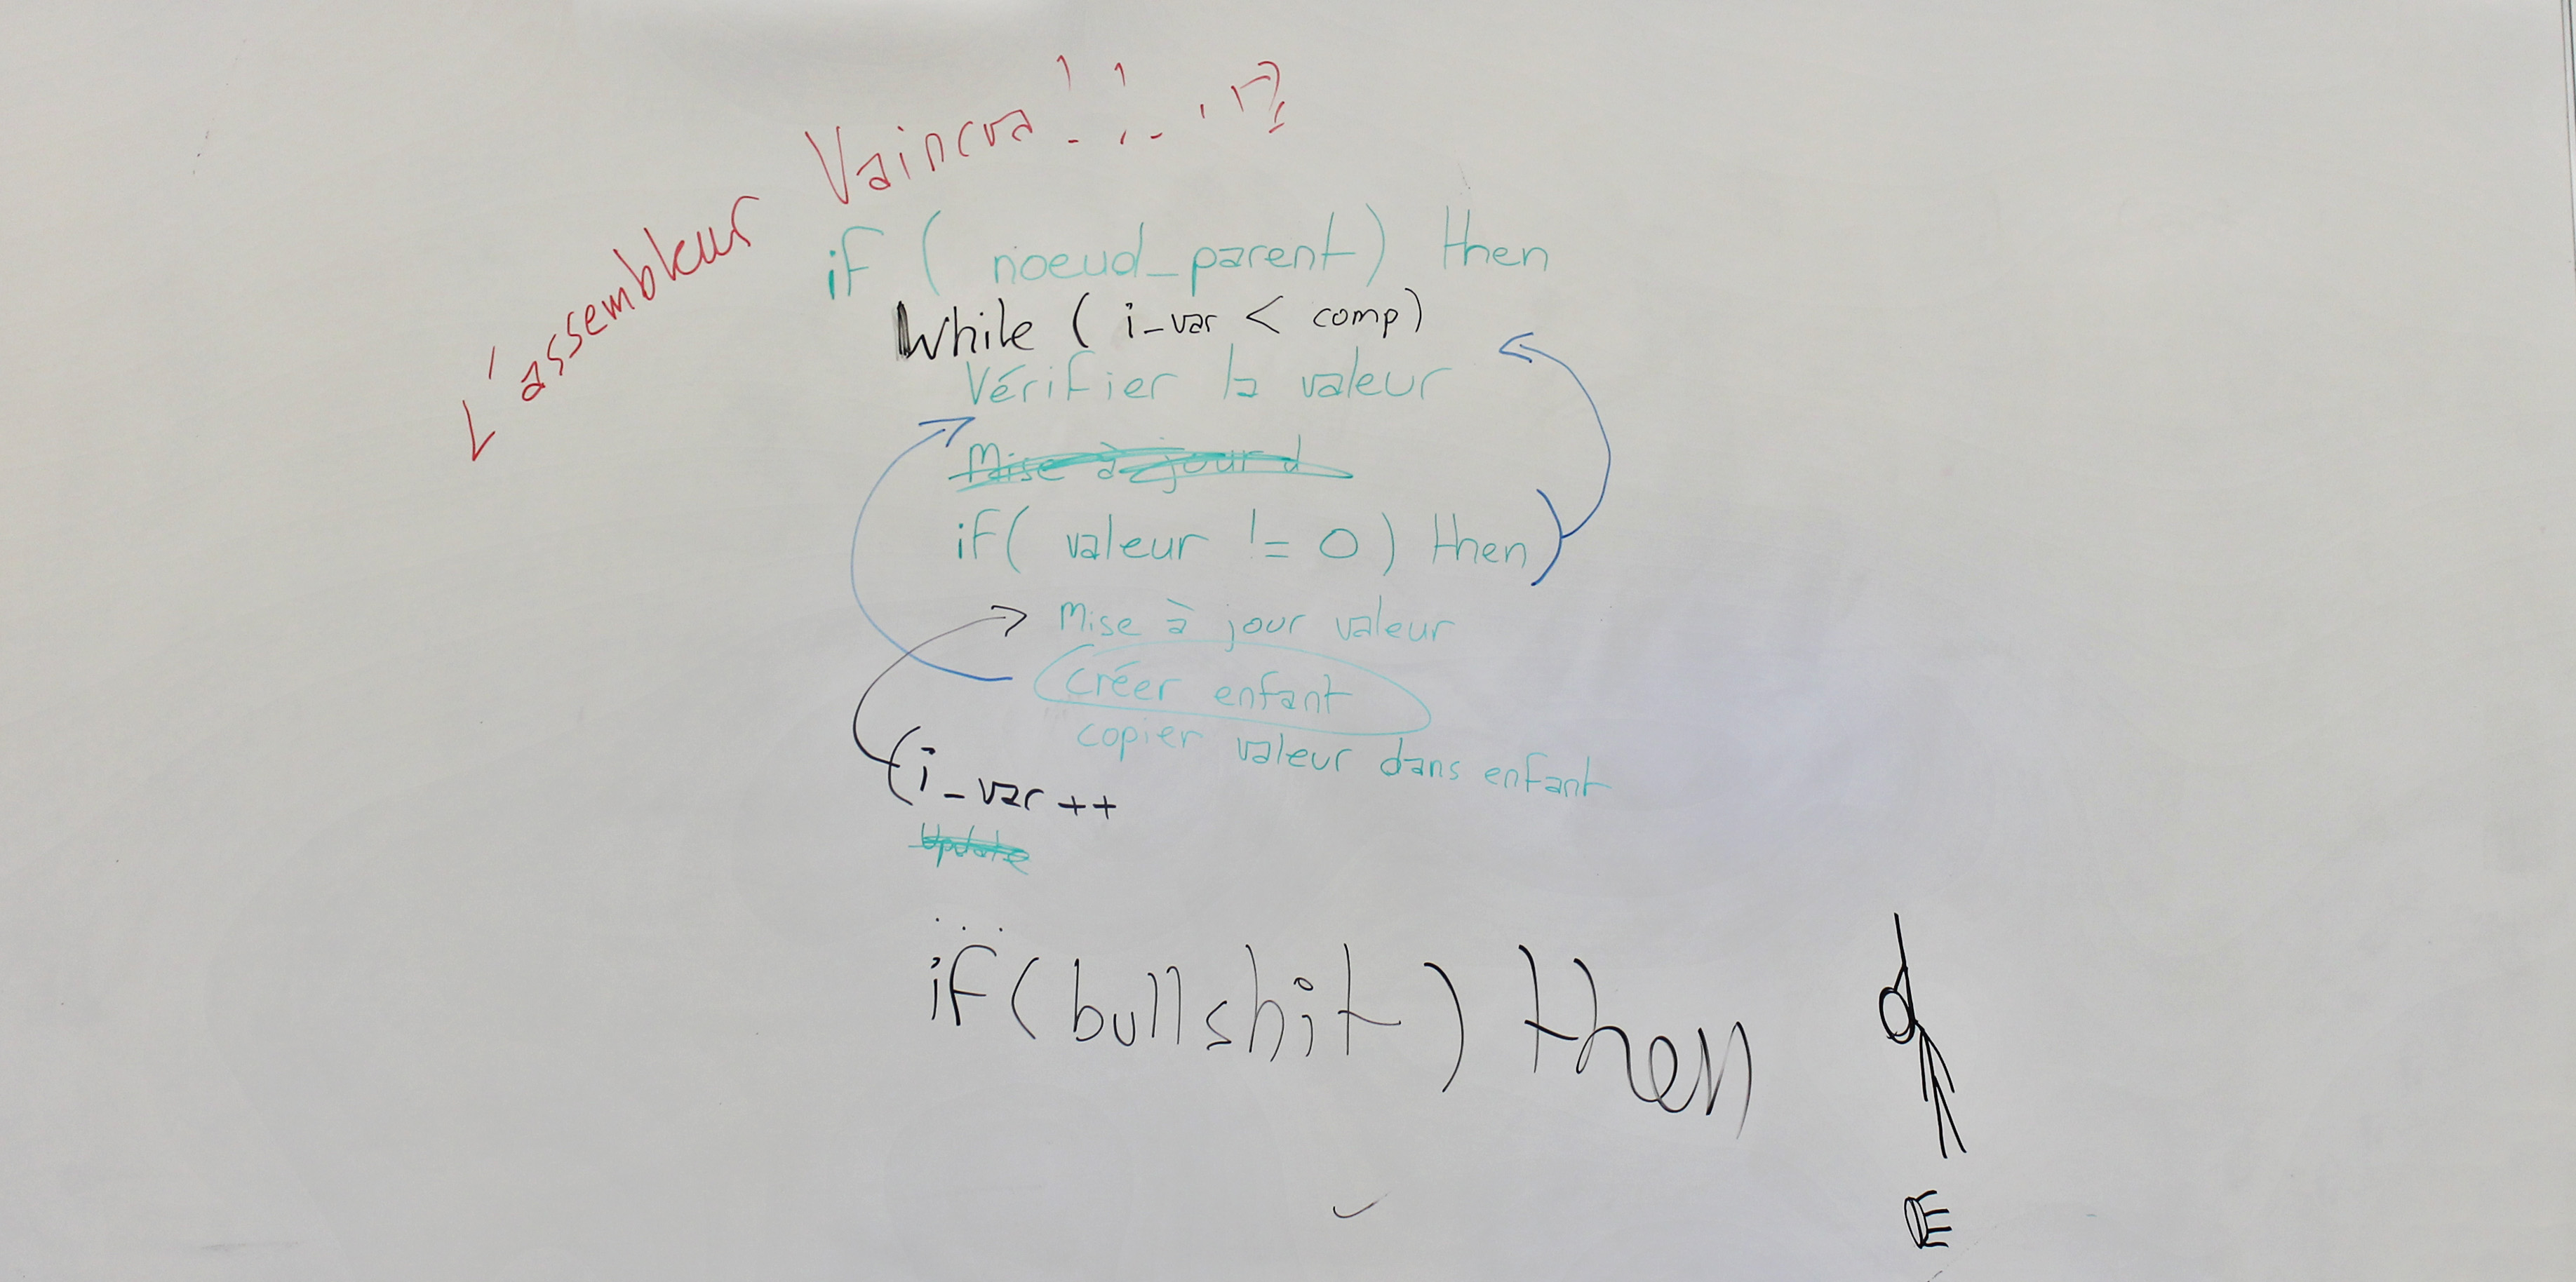 L'assembleur Vaincra!!...!?
if ( noeud_parent) then
While ( i_var < comp)
Vérifier la valeur
Mise à jour d
if( valeur != 0 ) then
Mise à jour valeur
créer enfant
copier valeur dans enfant
(i_var ++
Update
...
if(bullshit) then